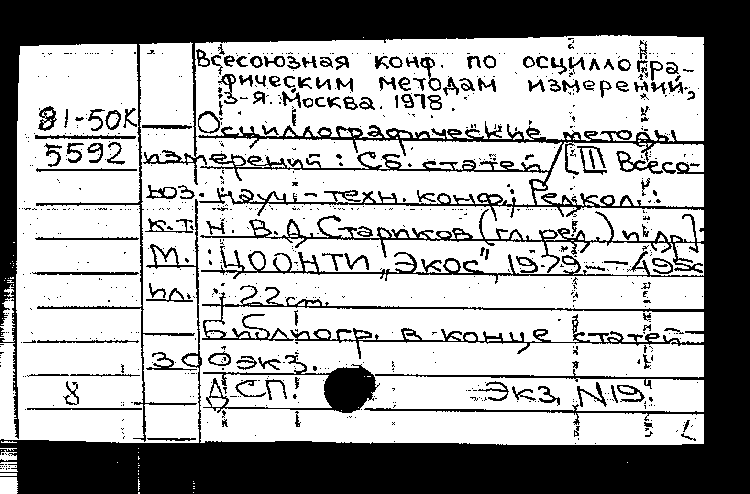 Всесоюзная конф. по осциллогра-
фическим методам измерений,
3-я. Москва. 1978.
81-50К Осциллографические методы
5592 измерений: Сб. статей [III Всесо-
юз. науч.-техн. конф.; Редкол.:
к.т.н. В.Д. Стариков (гл. ред.) и др.].
М.: ЦООНТИ "Экос", 1979. - 195с
ил.; 22 см.
Библиогр. в конце статей
300 экз.
8 ДСП! Экз. N19.